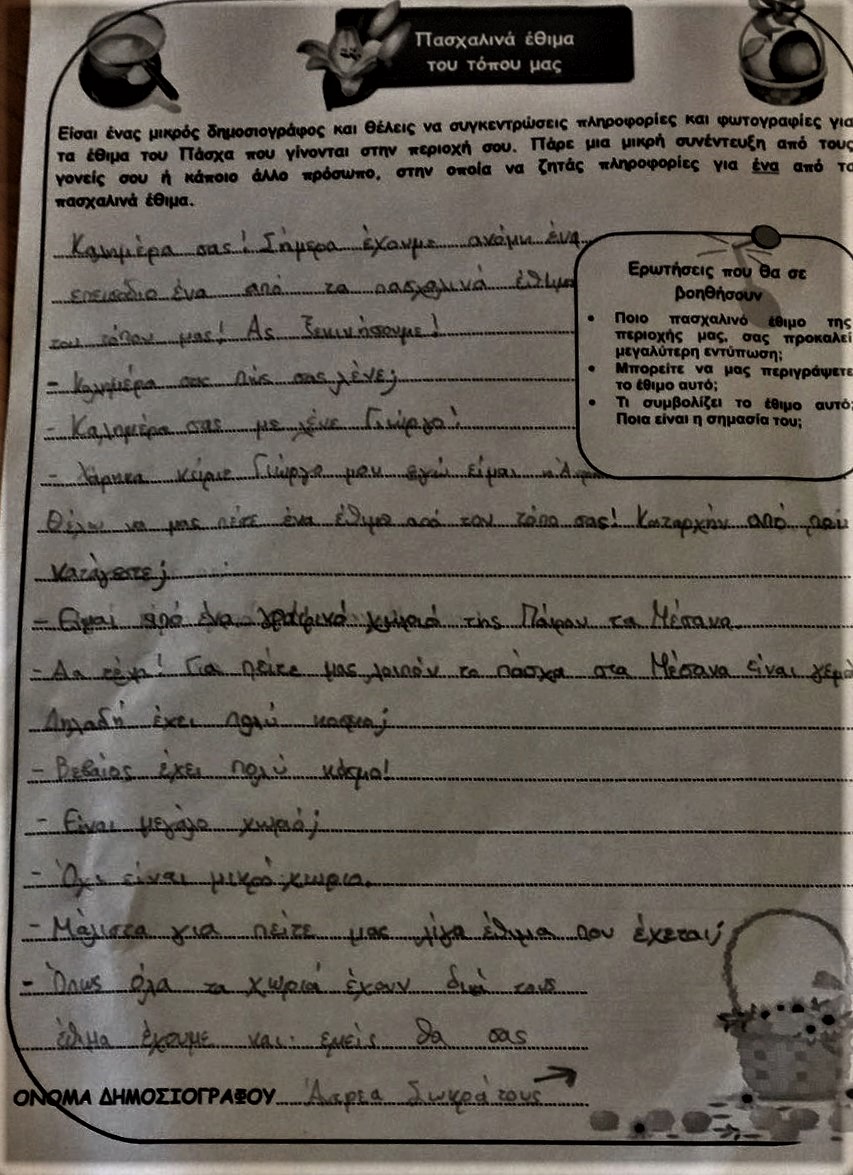 Πασχαλινά έθιμα
του τόπου μας
Είσαι ένας μικρός δημοσιογράφος και θέλεις να συγκεντρώσεις πληροφορίες και φωτογραφίες για
τα έθιμα του Πάσχα που γίνονται στην περιοχή σου. Πάρε μια μικρή συνέντευξη από τους
γονείς σου ή κάποιο άλλο πρόσωπο, στην οποία να ζητάς πληροφορίες για ένα από τα
πασχαλινά έθιμα.
Ερωτήσεις που θα σε
βοηθήσουν
• Ποιο πασχαλινό έθιμο της
περιοχής μας, σας προκαλεί
μεγαλύτερη εντύπωση;
• Μπορείτε να μας περιγράψετε
το έθιμο αυτό;
• Τι συμβολίζει το έθιμο αυτό;
Ποια είναι η σημασία του;
Καλημέρα σας! Σήμερα έχουμε ακόμη ένα
επεισόδιο ένα από τα πασχαλινά έθιμα
του τόπου μας! Ας ξεκινήσουμε!
- Καλημέρα σας πώς σας λένε;
- Καλημέρα σας με λένε Γιώργο!
- Χάρηκα κύριε Γιώργο μου εγώ είμαι η
Θέλω να μας πείτε ένα έθιμο από τον τόπο σας! Καταρχήν από που
κατάγεστε;
- Είμαι από ένα γραφικό χωριό της Πάφου τα Μέσανα
- Αα τέλεια! Για πείτε μας λοιπόν το πάσχα στα Μέσανα είναι γεμά
Δηλαδή έχει πολύ κοσμο;
- Βεβαίος έχει πολύ κόσμο!
- Είναι μεγάλο χωριό;
- Όχι είναι μικρό χωριο.
- Μάλιστα για πείτε μας λίγα έθιμα που έχεται;
- Όπως όλα τα χωριά έχουν δικά τους
έθιμα έχουμε και εμείς θα σας
ΟΝΟΜΑ ΔΗΜΟΣΙΟΓΡΑΦΟΥ Άντρεα Σωκράτους